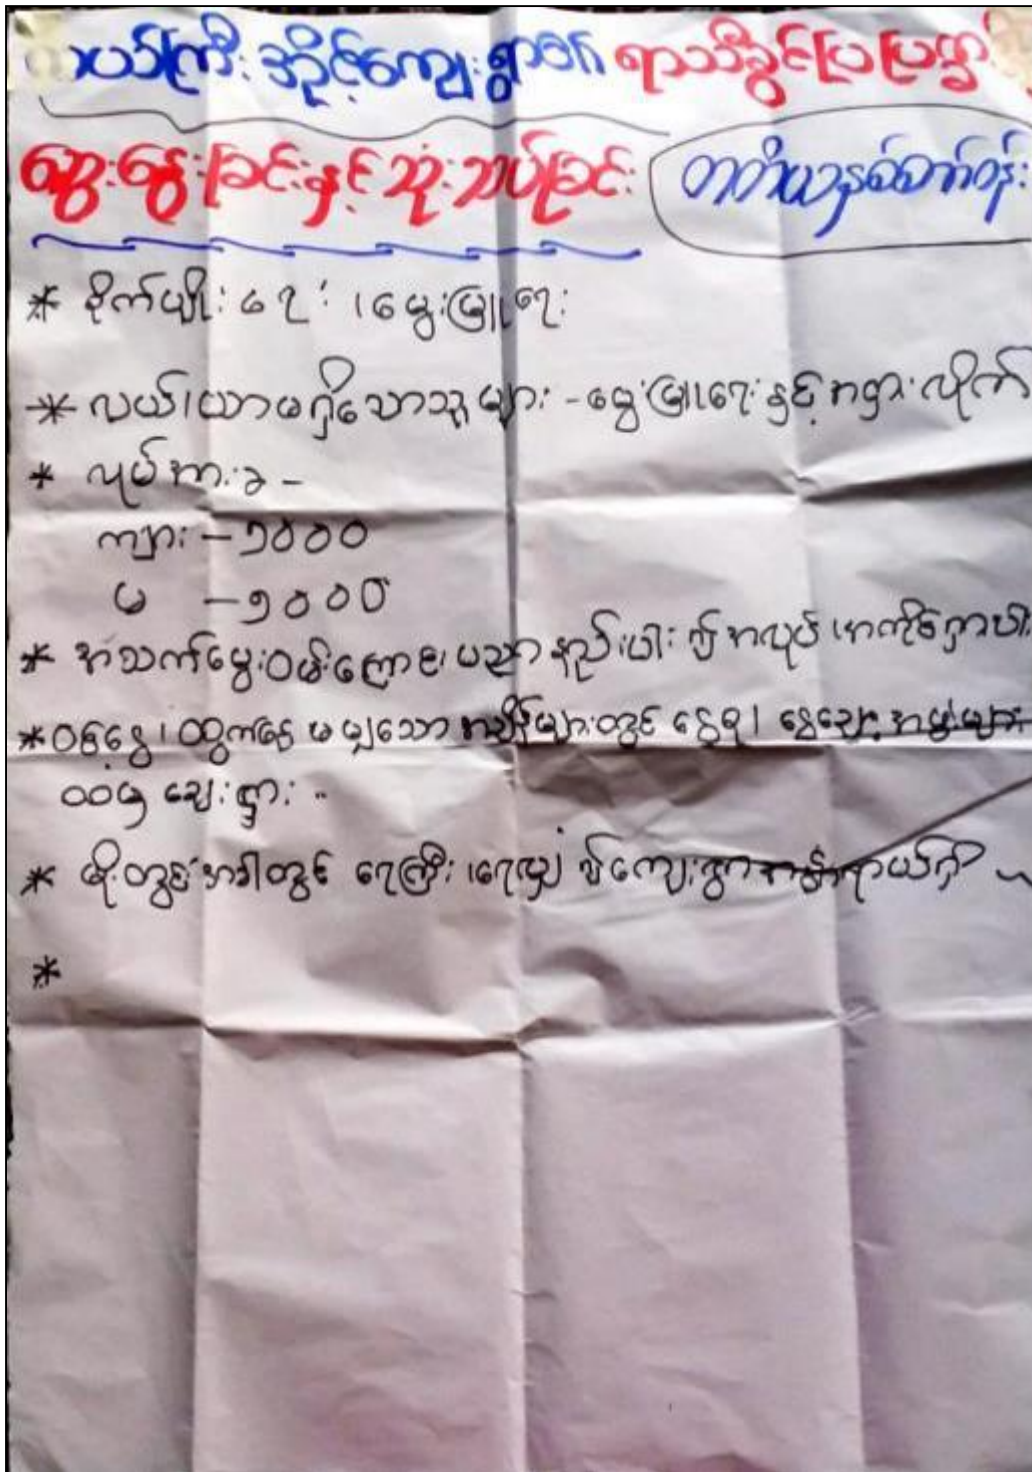 ကယ်ကြီးအိုင့်ကျေးရွာ၏ ရာသီခွင်ပြပြက္ခ
ဆွေးနွေးခြင်းနှင့်သုံးသပ်ခြင်း တတိယနှစ်စတော်ဝန်း
* စိုက်ပျိုးရေး ၊ မွေးမြူရေး
* လယ်၊ယာမရှိသောသူများ - မွေးမြူရေးနှင့်အငှားလိုက်
* လုပ်အားခ -
ကျား - ၅၀၀၀
မ - ၅၀၀၀
* အသက်မွေးဝမ်းကြောင်းပညာနည်းပါး၍ အလုပ်
* ဝင်ငွေ၊ ထွက်ငွေ မမျှသော အချိန်များတွင် ငွေစု၊ ငွေချေး အဖွဲ့များ
ထံမှ ချေးငှား ..
* မိုးတွင်းအခါတွင် ရေကြီး၊ ရေလျှံ ၍ကျေးရွာ
*